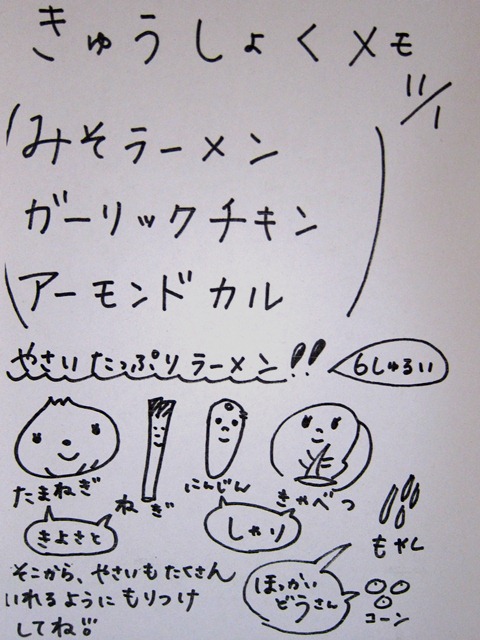 きゅうしょくメモ
11/1
みそラーメン
ガーリックチキン
アーモンドカル
やさいたっぷりラーメン!!
6しゅるい
たまねぎ
ねぎ
にんじん
きゃべつ
もやし
きよさと
しゃり
ほっかい
どうさん
コーン
そこから、やさいもたくさん
いれるようにもりつけ
してね!!